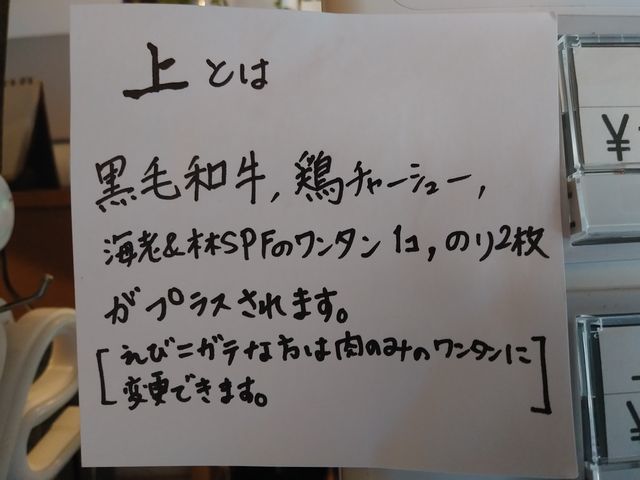 上とは
黒毛和牛,鶏チャーシュー,
海老&林SPFのワンタン1コ,のり2枚
がプラスされます。
[えびニガテな方は肉のみのワンタンに
変更できます。]
¥